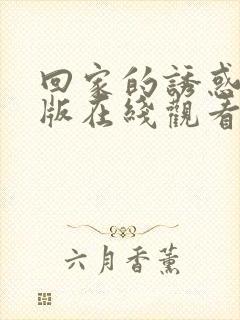 回家的誘惑
版在綫觀看
六月香薰